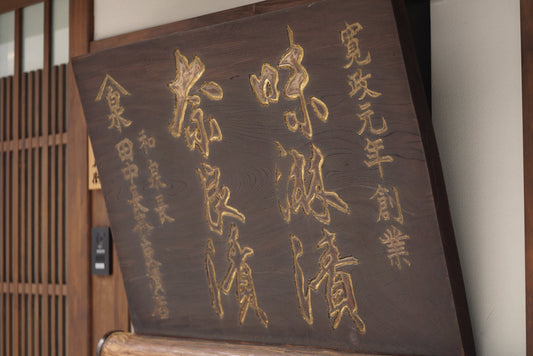 寛政元年創業
味淋漬
奈良漬
泉
和泉長
田中長奈良漬店